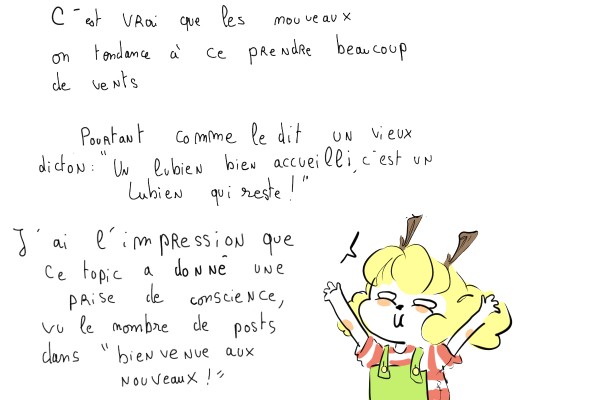 C'est vrai que les nouveaux
on tendance à ce prendre beaucoup
de vents
Pourtant comme le dit un vieux
dicton: "Un lubien bien accueilli, c'est un
lubien qui reste!"
J'ai l'impression que
ce topic a donnê une
prise de conscience,
vu le nombre de posts
dans "bienvenue aux
nouveaux!"